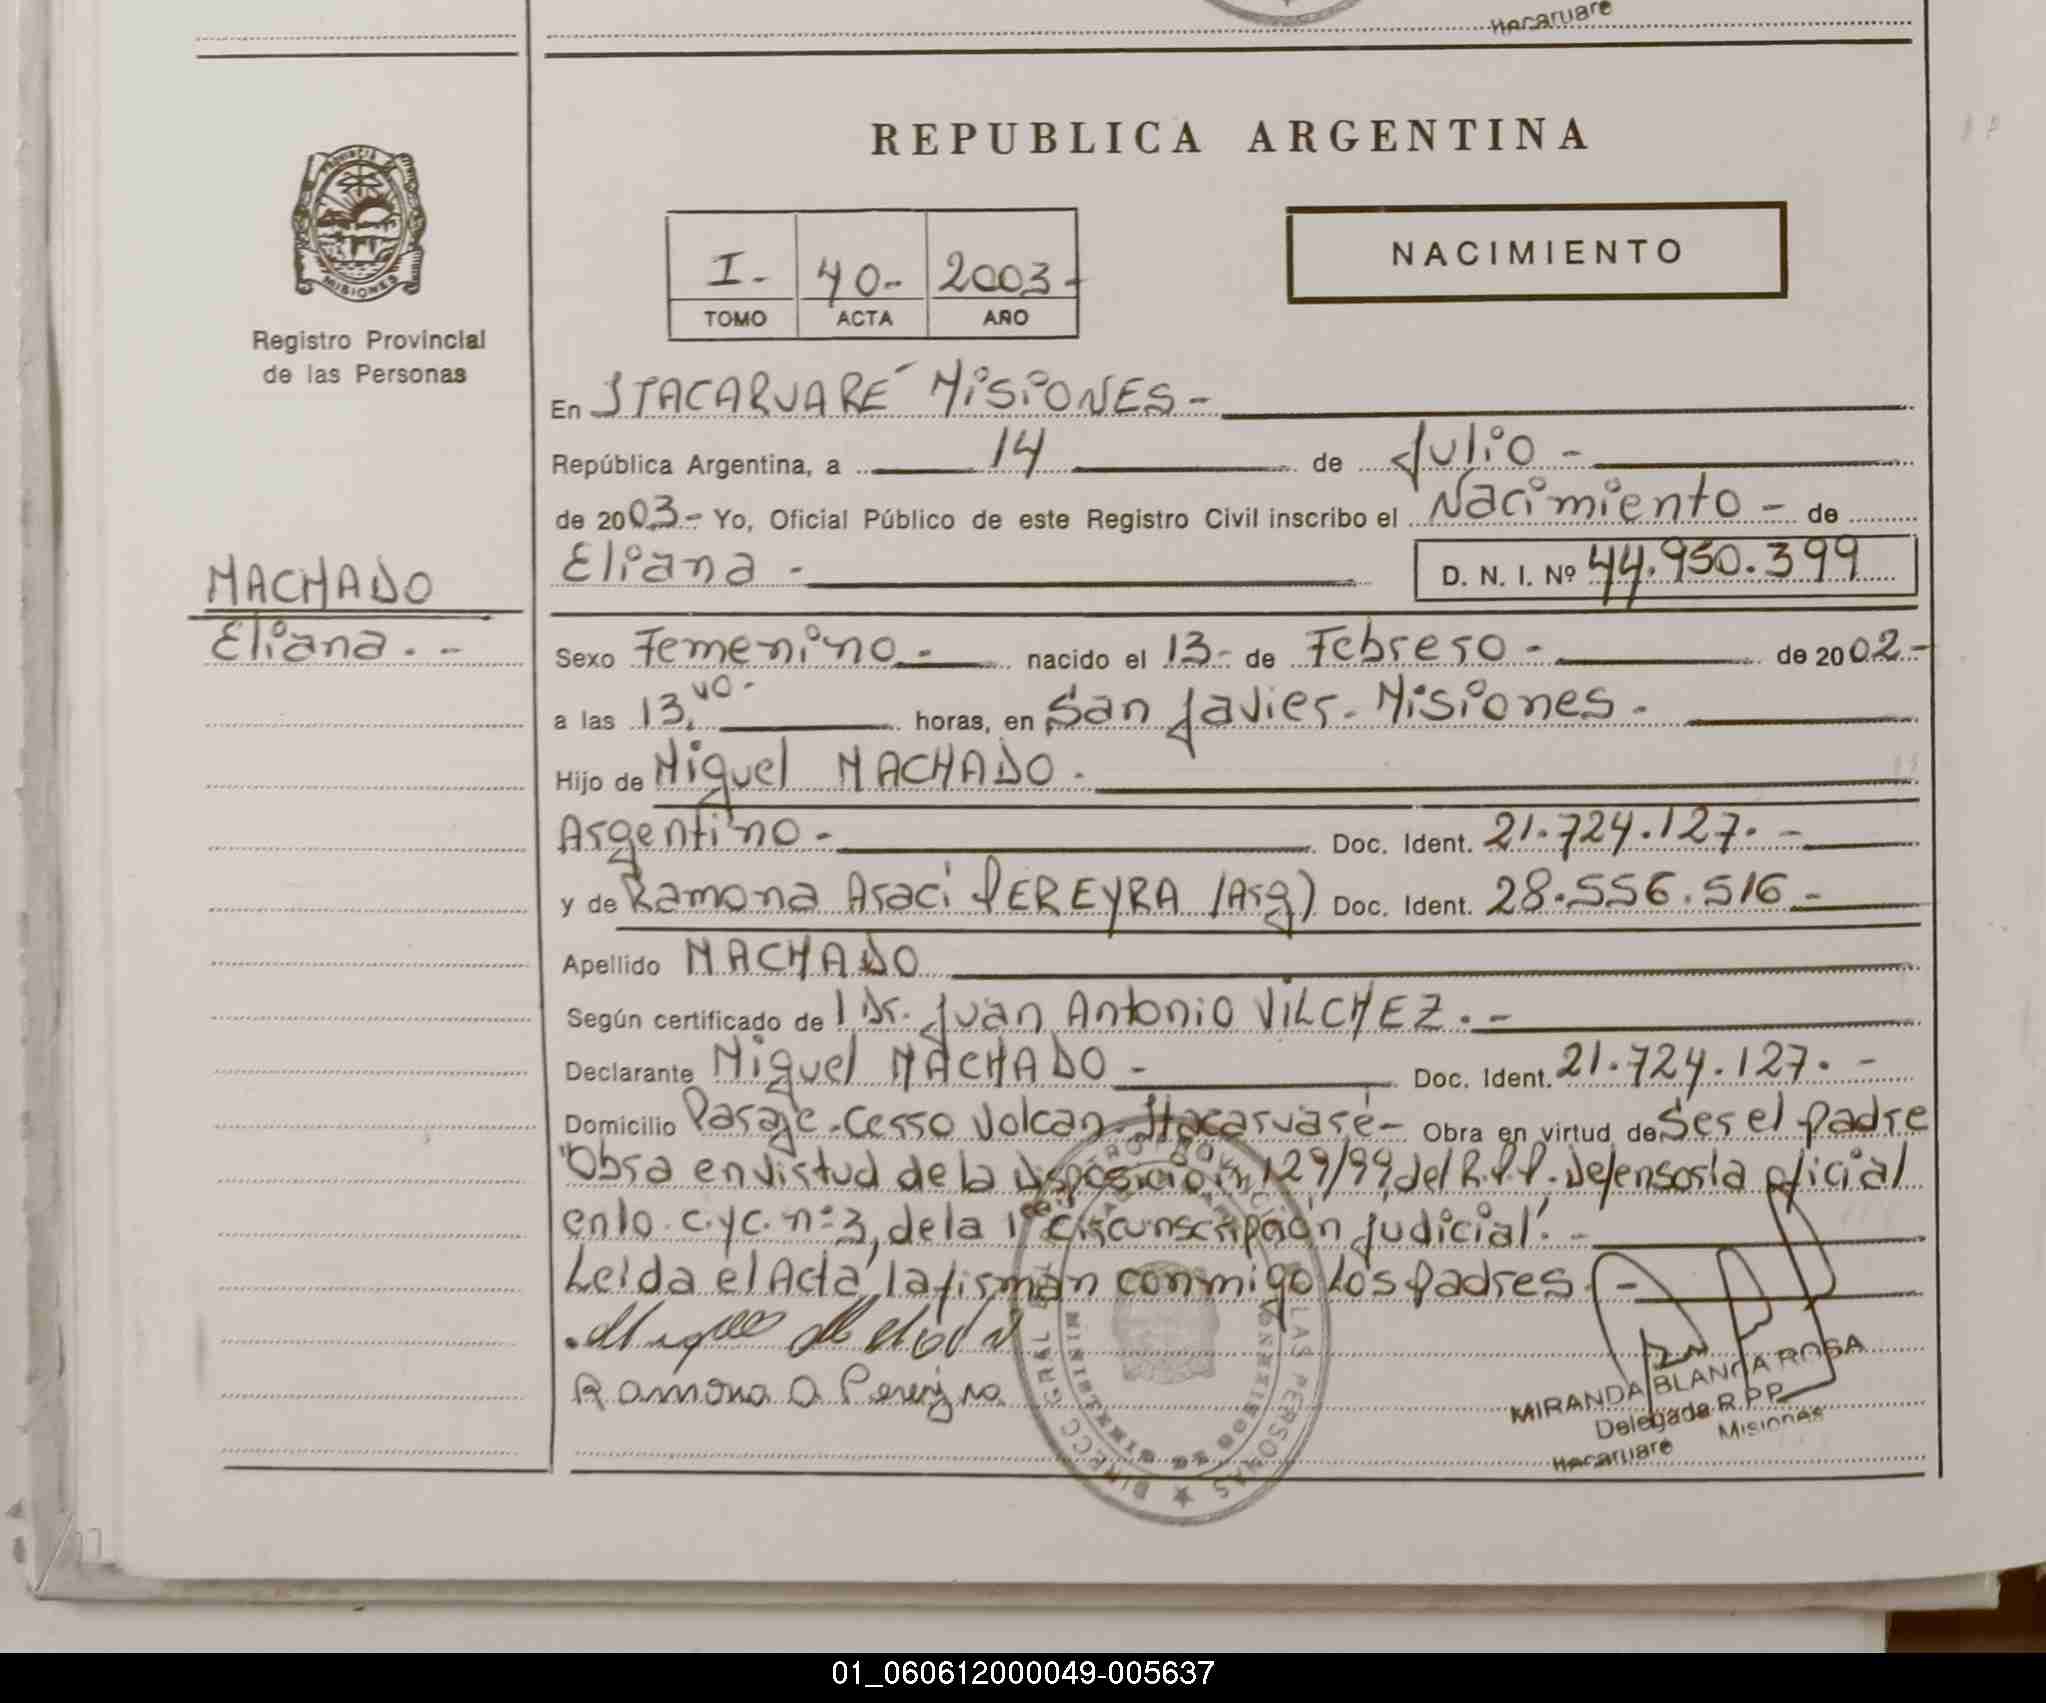 Itacaruaré
REPUBLICA ARGENTINA
PROVINCIA DE
MISIONES
I.- 40.- 2003.-
TOMO ACTA AÑO
NACIMIENTO
Registro Provincial
de las Personas
En ITACARUARÉ MISIONES -
República Argentina, a 14 de Julio -
de 2003 - Yo, Oficial Público de este Registro Civil inscribo el Nacimiento - de
Eliana - D. N. I. Nº 44.950.399
MACHADO
Eliana. -
Sexo Femenino - nacido el 13 - de Febrero - de 2002 -
a las 13, horas, en San Javier - Misiones -
Hijo de Miguel MACHADO -
Argentino - Doc. Ident. 21.724.127. -
y de Ramona Araci PEREYRA (Arg) Doc. Ident. 28.556.516 -
Apellido MACHADO
Según certificado de l Dr. Juan Antonio VILCHEZ. -
Declarante Miguel MACHADO - Doc. Ident. 21.724.127. -
Domicilio Paraje - Cerro Volcan - Itacaruaré - Obra en virtud de Ser el padre
"Obra en virtud de la Disposición 129/99, del R.P.P. Defensoría oficial
en lo C.yC. nº 3, de la 1era Circunscripción Judicial". -
Leida el Acta, la firman conmigo Los padres. -
Miguel Machado
Ramona A Pereyra
MIRANDA BLANCA ROSA
Delegada R.P.P.
Itacaruaré Misiones
01_060612000049-005637